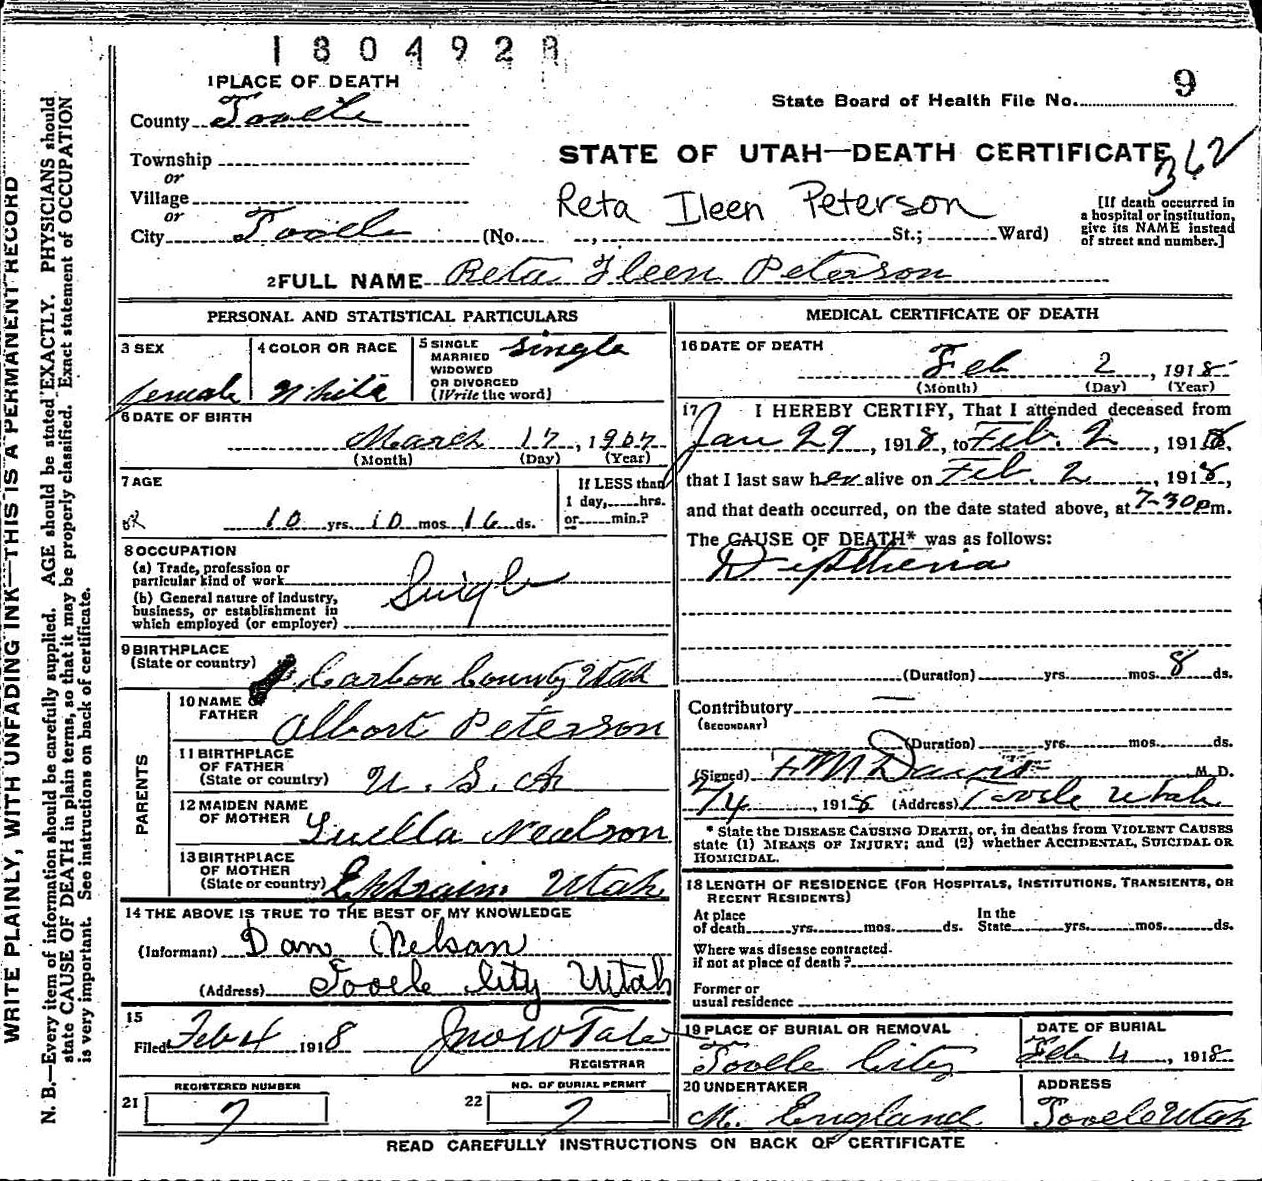 1804928
1 PLACE OF DEATH
State Board of Health File No. 9
County Tooele
Township
or
STATE OF UTAH—DEATH CERTIFICATE 362
Village
or
Reta Ileen Peterson
[If death occurred in a hospital or institution, give its NAME instead of street and number.]
City Tooele (No. , St.; Ward)
2 FULL NAME Reta Ileen Peterson
PERSONAL AND STATISTICAL PARTICULARS
3 SEX
female
4 COLOR OR RACE
White
5 SINGLE
MARRIED
WIDOWED
OR DIVORCED
(Write the word)
Single
6 DATE OF BIRTH
March 17, 1907
(Month) (Day) (Year)
7 AGE
10 yrs. 10 mos. 16 ds.
If LESS than
1 day, hrs.
or min.?
8 OCCUPATION
(a) Trade, profession or
particular kind of work
(b) General nature of industry,
business, or establishment in
which employed (or employer)
Single
9 BIRTHPLACE
(State or country)
Carbon County Utah
PARENTS
10 NAME OF
FATHER
Albert Peterson
11 BIRTHPLACE
OF FATHER
(State or country)
U. S. A
12 MAIDEN NAME
OF MOTHER
Luella Nealson
13 BIRTHPLACE
OF MOTHER
(State or country)
Ephraim Utah
14 THE ABOVE IS TRUE TO THE BEST OF MY KNOWLEDGE
(Informant) Dan Nelson
(Address) Tooele City Utah
15
Filed Feb 4 1918 Jno W Tate
REGISTRAR
REGISTERED NUMBER
21 7
NO. OF BURIAL PERMIT
22 7
MEDICAL CERTIFICATE OF DEATH
16 DATE OF DEATH
Feb 2, 1918
(Month) (Day) (Year)
17 I HEREBY CERTIFY, That I attended deceased from
Jan 29, 1918, to Feb. 2, 1918.
that I last saw her alive on Feb. 2, 1918,
and that death occurred, on the date stated above, at 7-30 p m.
The CAUSE OF DEATH* was as follows:
Diptheria
(Duration) yrs. mos. 8 ds.
Contributory —
(SECONDARY)
(Duration) yrs. mos. ds.
(Signed) F M Davis M. D.
2/4, 1918 (Address) Tooele Utah
* State the DISEASE CAUSING DEATH, or, in deaths from VIOLENT CAUSES
state (1) MEANS OF INJURY; and (2) whether ACCIDENTAL, SUICIDAL OR
HOMICIDAL.
18 LENGTH OF RESIDENCE (FOR HOSPITALS, INSTITUTIONS, TRANSIENTS, OR
RECENT RESIDENTS)
At place
of death yrs. mos. ds.
In the
State yrs. mos. ds.
Where was disease contracted
if not at place of death?
Former or
usual residence
19 PLACE OF BURIAL OR REMOVAL
Tooele City
DATE OF BURIAL
Feb 4, 1918
20 UNDERTAKER
M. England
ADDRESS
Tooele Utah
READ CAREFULLY INSTRUCTIONS ON BACK OF CERTIFICATE
WRITE PLAINLY, WITH UNFADING INK—THIS IS A PERMANENT RECORD
N. B.—Every item of information should be carefully supplied. AGE should be stated EXACTLY. PHYSICIANS should
state CAUSE OF DEATH in plain terms, so that it may be properly classified. Exact statement of OCCUPATION
is very important. See instructions on back of certificate.